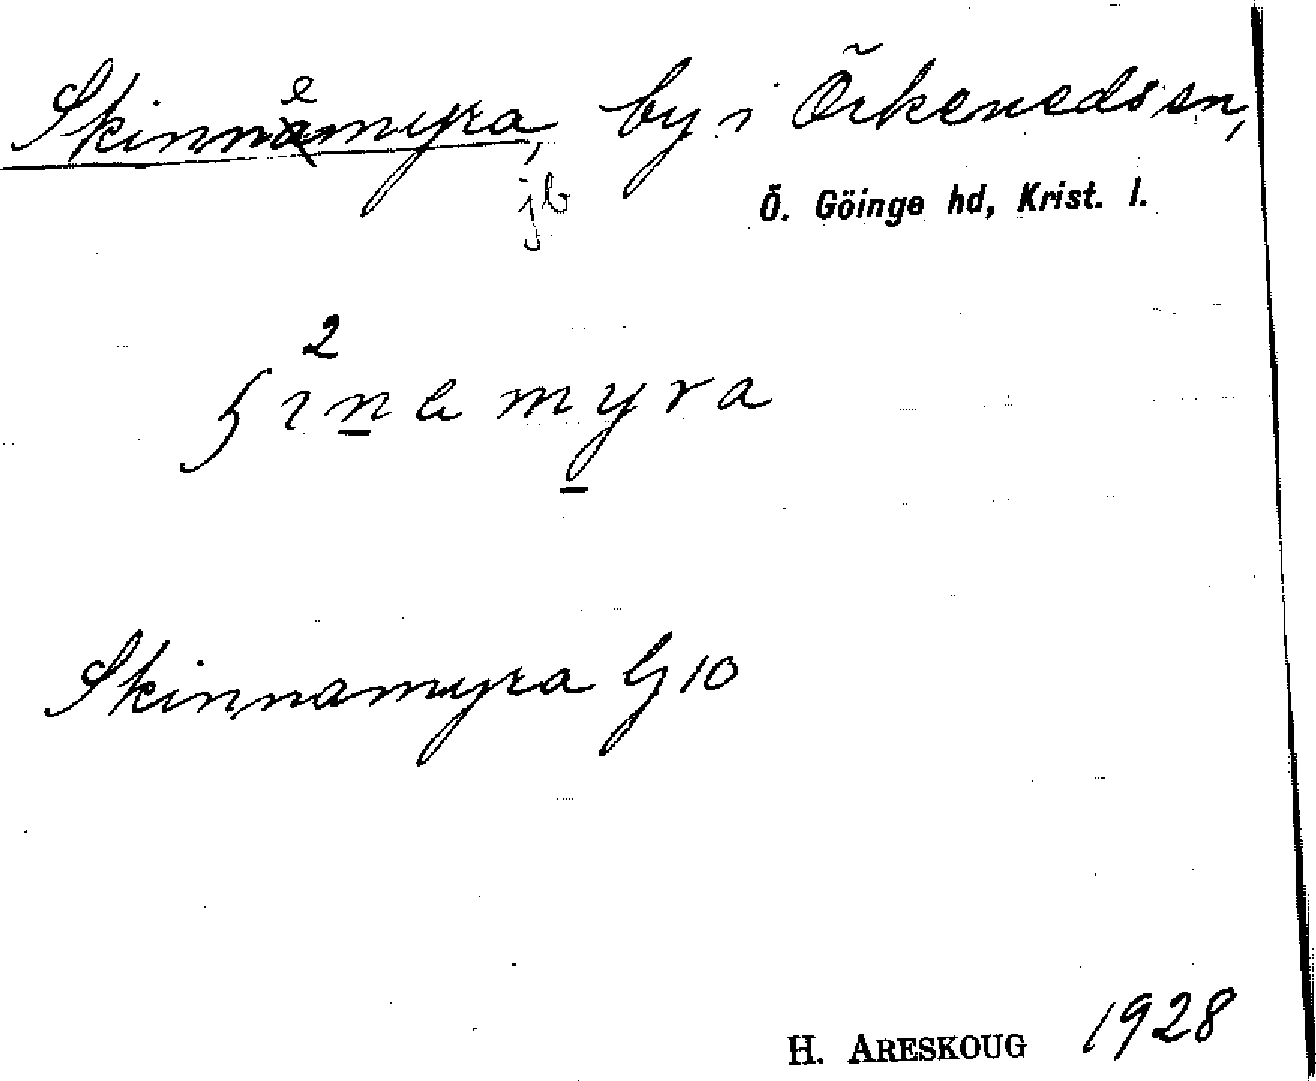 Skinnemyra, by i Örkeneds sn,
jb
Ö. Göinge hd, Krist. l.
2
Skinnamyra G 10
H. ARESKOUG 1928